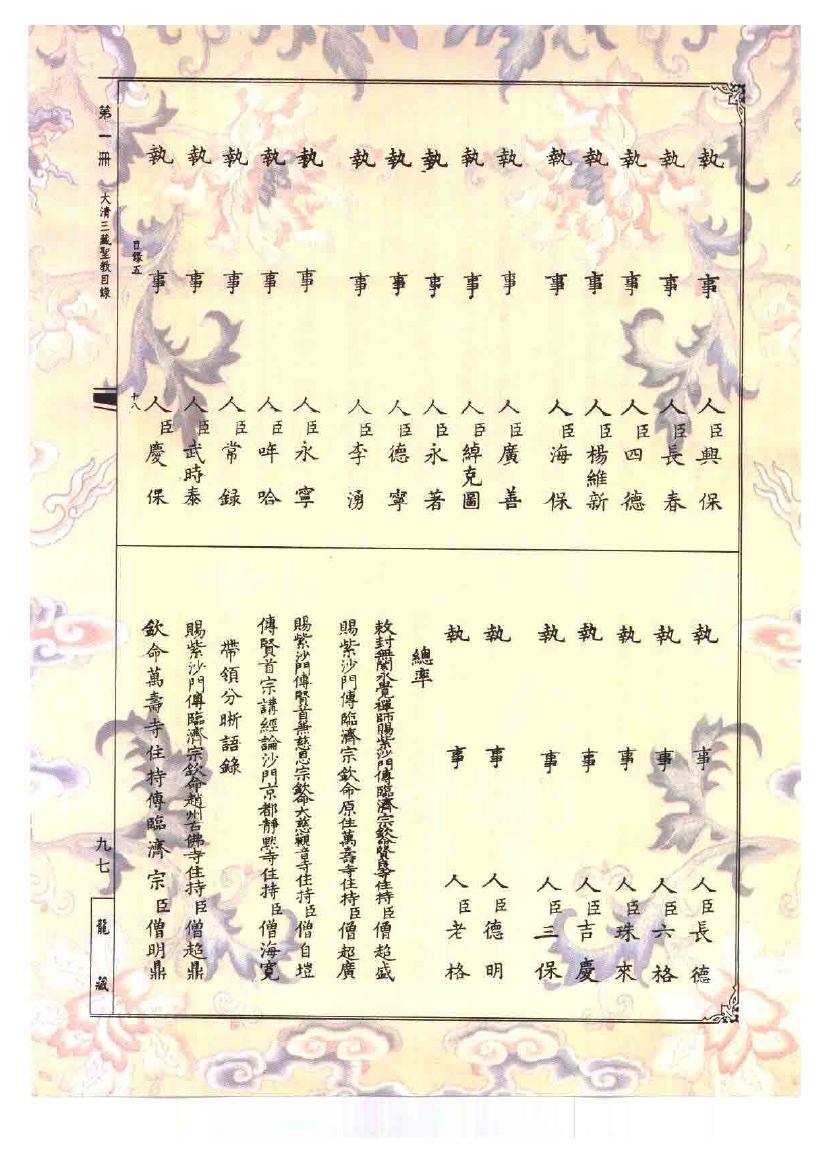 執事人臣興保
執事人臣長春
執事人臣四德
執事人臣楊維新
執事人臣海保
執事人臣廣善
執事人臣綽克圖
執事人臣永著
執事人臣德寧
執事人臣李湧
執事人臣永寧
執事人臣哞哈
執事人臣常録
執事人臣武時泰
執事人臣慶保
執事人臣長德
執事人臣六格
執事人臣珠來
執事人臣吉慶
執事人臣三保
執事人臣德明
執事人臣老格
總率
敕封無閡永覺禪師賜紫沙門傳臨濟宗欽命賢良寺住持臣僧超盛
賜紫沙門傳臨濟宗欽命原住萬壽寺住持臣僧超廣
賜紫沙門傳賢首兼慈恩宗欽命大慈觀音寺住持臣僧自塏
傳賢首宗講經論沙門京都靜默寺住持臣僧海寬
帶領分晰語錄
賜紫沙門傳臨濟宗欽命趙州古佛寺住持臣僧超鼎
欽命萬壽寺住持傳臨濟宗臣僧明鼎
目錄五
十八
第一冊 大清三藏聖教目錄
九七
龍藏